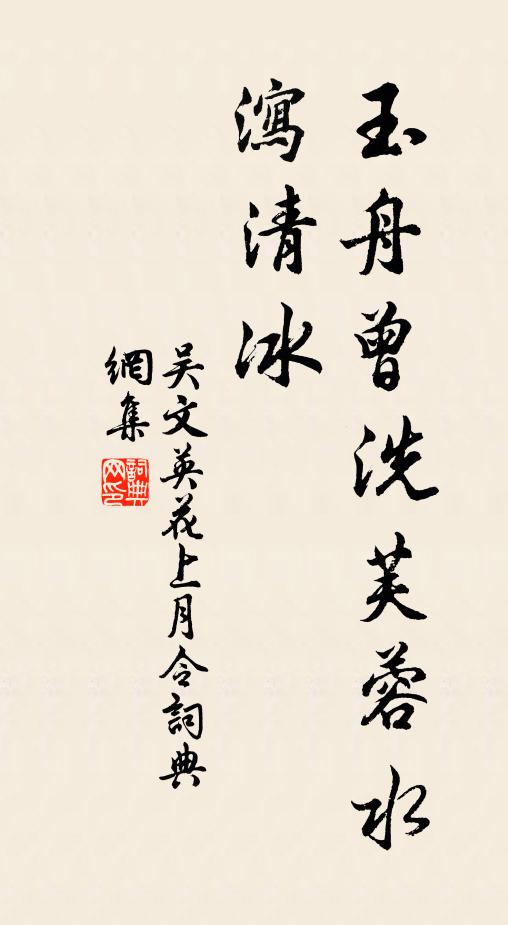 玉舟曾洗芙蓉水
瀉清冰
吴文英花上月令詞典
網集
詞典
网印